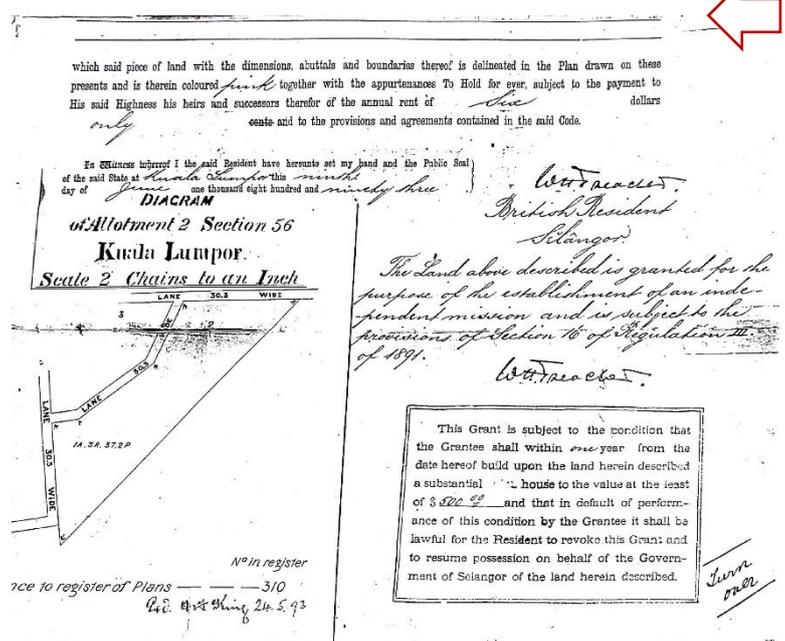 which said piece of land with the dimensions, abuttals and boundaries thereof is delineated in the Plan drawn on these
presents and is therein coloured pink together with the appurtenances To Hold for ever, subject to the payment to
His said Highness his heirs and successors therefor of the annual rent of Six dollars
only cents and to the provisions and agreements contained in the said Code.
In Witness whereof I the said Resident have hereunto set my hand and the Public Seal
of the said State at Kuala Lumpor this ninth
day of June one thousand eight hundred and ninety three
DIAGRAM
of Allotment 2 Section 56
Kuala Lumpor.
Scale 2 Chains to an Inch
LANE 30.3 WIDE
3
2
LANE 30.3
LANE 30.3 WIDE
1A. 3R. 37.2P
No in register
nce to register of Plans — — — 310
24.5.93
W.H. Treacher.
British Resident
Selangor.
The Land above described is granted for the
purpose of the establishment of an inde-
pendent mission and is subject to the
provisions of Section 16 of Regulation III
of 1891.
W.H. Treacher.
This Grant is subject to the condition that
the Grantee shall within one year from the
date hereof build upon the land herein described
a substantial house to the value at the least
of $ 500 00 and that in default of perform-
ance of this condition by the Grantee it shall be
lawful for the Resident to revoke this Grant and
to resume possession on behalf of the Govern-
ment of Selangor of the land herein described.
Turn
over